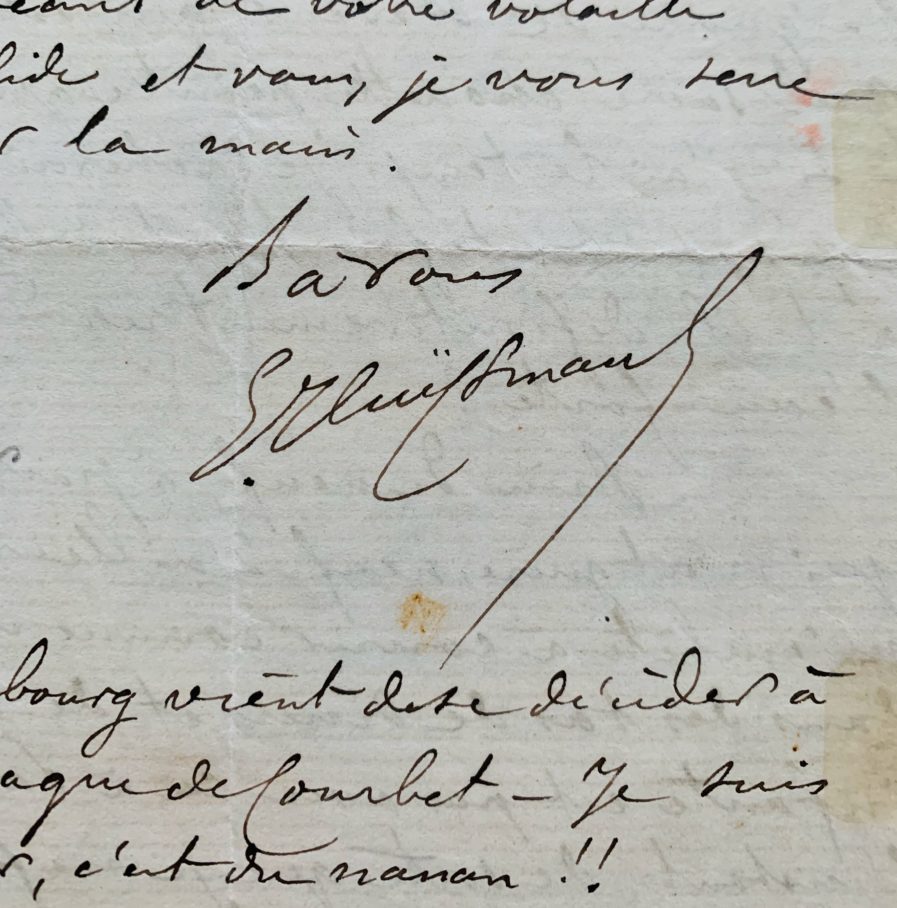 de votre volaille
et vous, je vous serre
la main.
B à vous
G Huÿsmans
bourg vient de se décider à
ague de Courbet – Je suis
, c'est du nanan !!